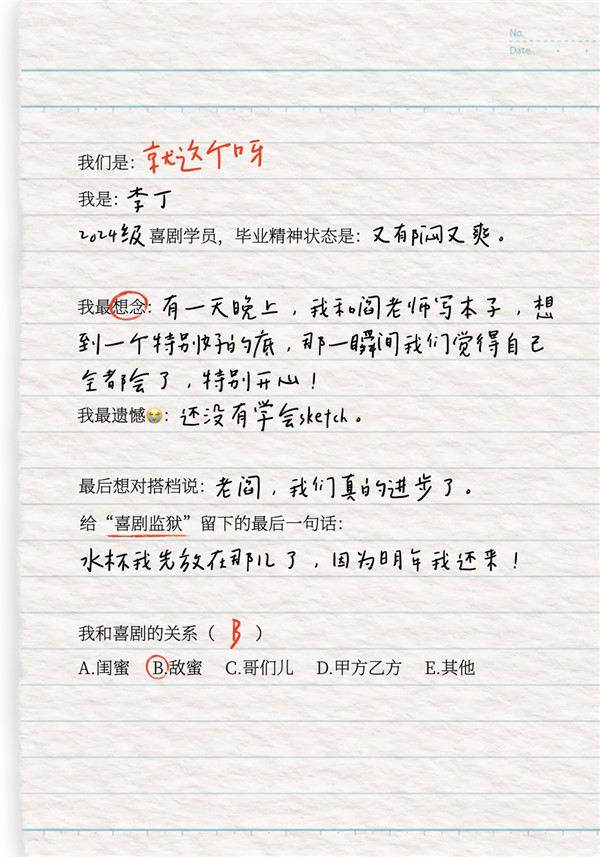 No.
Date
我们是：就这个呀
我是：李丁
2024级喜剧学员，毕业精神状态是：又有闷又爽。
我最想念：有一天晚上，我和阎老师写本子，想
到一个特别好的底，那一瞬间我们觉得自己
全都会了，特别开心！
我最遗憾😭：还没有学会sketch。
最后想对搭档说：老阎，我们真的进步了。
给“喜剧监狱”留下的最后一句话：
水杯我先放在那儿了，因为明年我还来！
我和喜剧的关系（ B ）
A.闺蜜 B.敌蜜 C.哥们儿 D.甲方乙方 E.其他